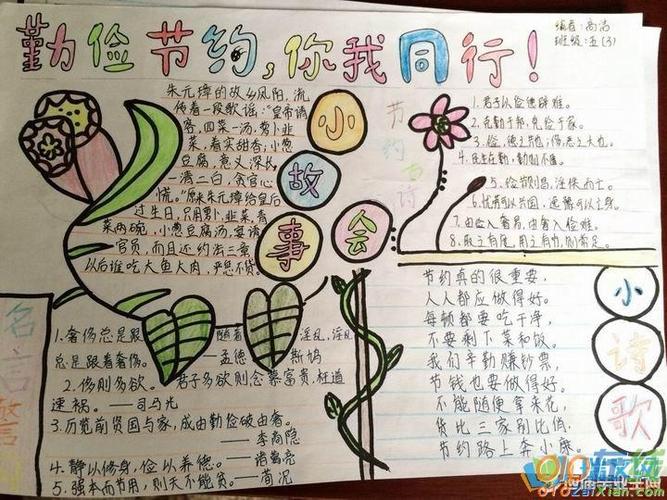 勤俭节约,你我同行!
编者:高洁
班级:五(3)
朱元璋的故乡凤阳,流
传着一段歌谣:“皇帝请
客,四菜一汤,萝卜韭
菜,着实甜香;小葱
豆腐,意义深长,
一清二白,贪官心
慌。”原来朱元璋给皇后
过生日,只用萝卜韭菜,青
菜两碗,小葱豆腐汤,宴请
官员,而且还约法三章
以后谁吃大鱼大肉,严惩不贷。
小故事会
节约古诗
1.君子以俭德辟难。
2.克勤于邦,克俭于家。
3.俭,德之共也;侈,恶之大也。
4.民生在勤,勤则不匮。
5.俭节则昌,淫佚而亡。
6.忧劳可以兴国,逸豫可以亡身。
7.由俭入奢易,由奢入俭难。
8.取之有度,用之有节,则常足。
名言警
1.奢侈总是跟随着淫乱,淫乱
总是跟着奢侈。孟德斯鸠
2.侈则多欲。君子多欲则念慕富贵,枉道
速祸。——司马光
3.历览前贤国与家,成由勤俭破由奢。
——李商隐
4.静以修身,俭以养德。——诸葛亮
5.强本而节用,则天不能贫。——荀况
小诗歌
节约真的很重要,
人人都应做得好。
每顿都要吃干净,
不要剩下菜和饭。
我们辛勤赚钞票,
节钱也要做得好。
不能随便拿来花,
货比三家别比值,
节约路上奔小康。